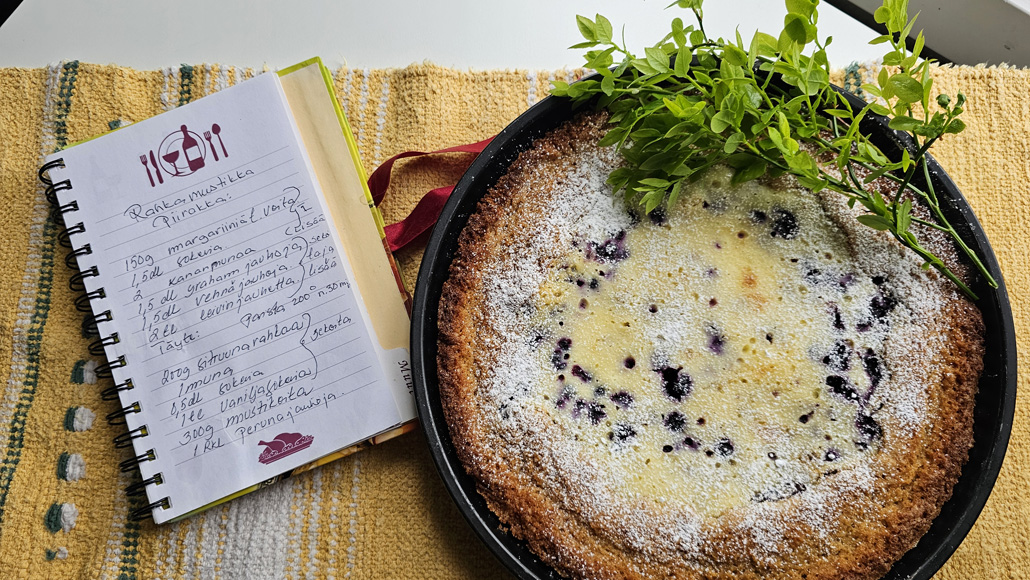 Rahkamustikka
Piirakka:
150g margariinia t. voita
1,5dl sokeria
2 kananmunaa
1,5 dl graham jauhoja
1,5dl vehnäjauhoja
2tl leivinjauhetta
vaahto
lisää
seko
taja
lisää
Täyte: Paista 200° n. 30 min
200g sitruunarahkaa
1 muna
0,5dl sokeria
1tl vaniljasokeria
sekoita
300g mustikoita
1 rkl perunajauhoja.